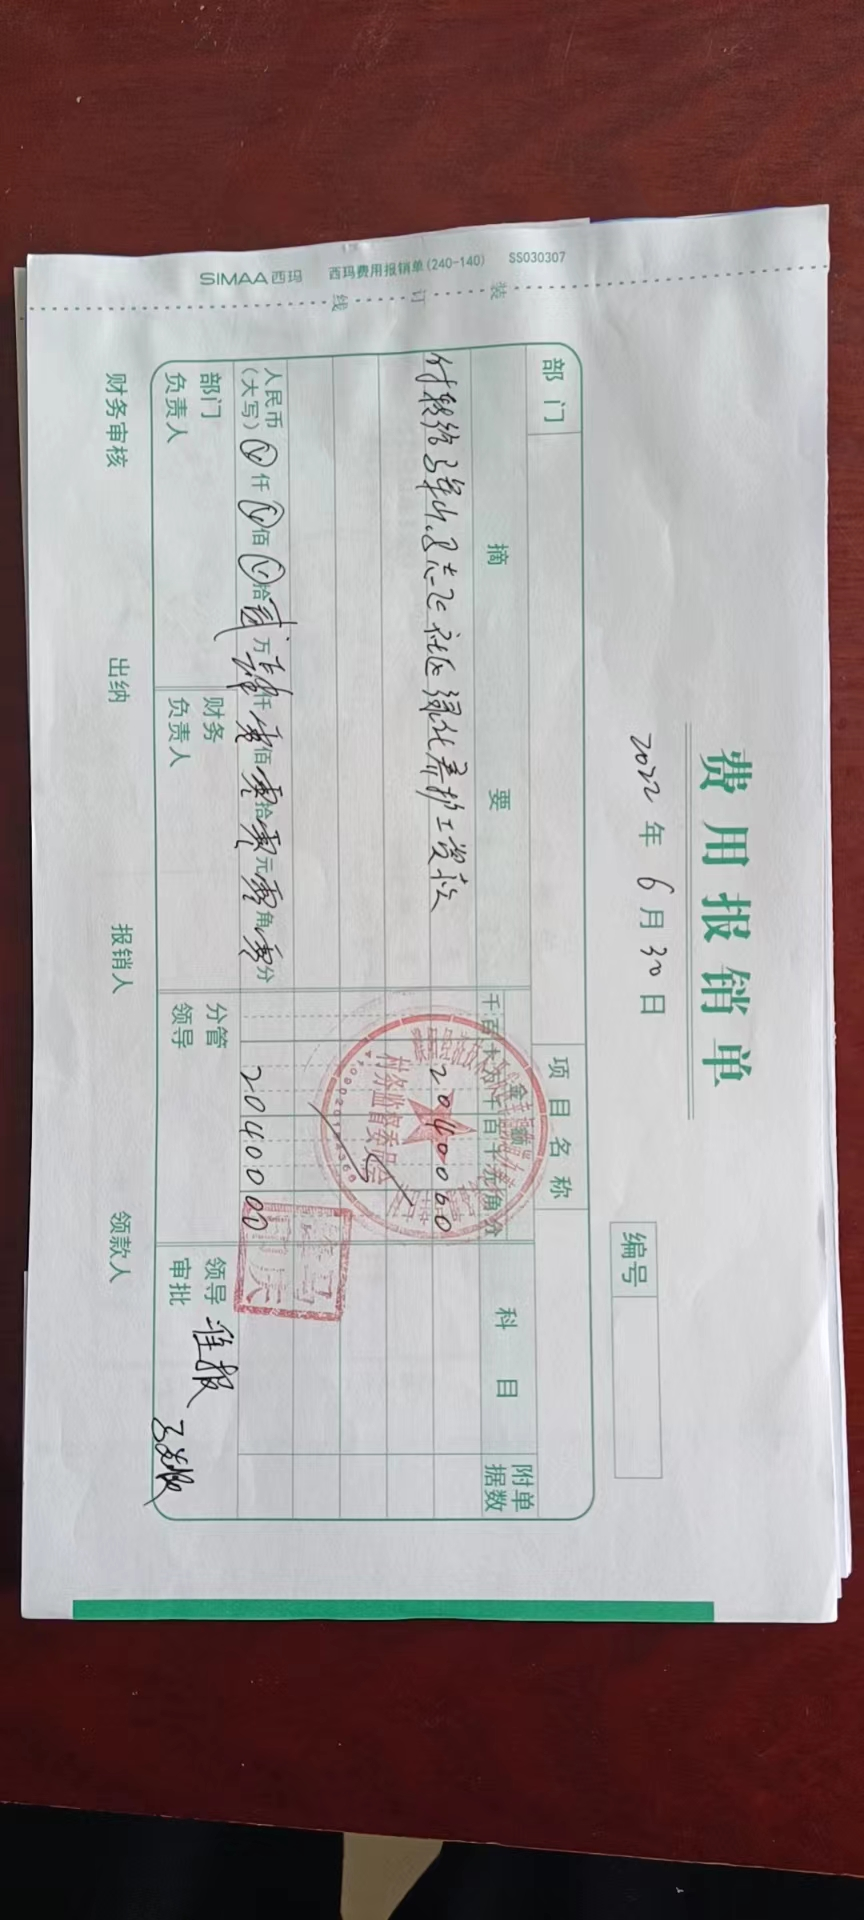 费用报销单
2022年6月30日
编号
部门
项目名称
摘要
金额
科目
附单据数
千百十万千百十元角分
社区绿化养护工资款
2040000
村务监督委员会
人民币(大写)
仟佰拾贰万肆仟零佰零拾零元零角零分
2040000
部门负责人
财务负责人
分管领导
领导审批
准报
财务审核
出纳
报销人
领款人
装订线
SIMAA西玛 西玛费用报销单(240-140) SS030307